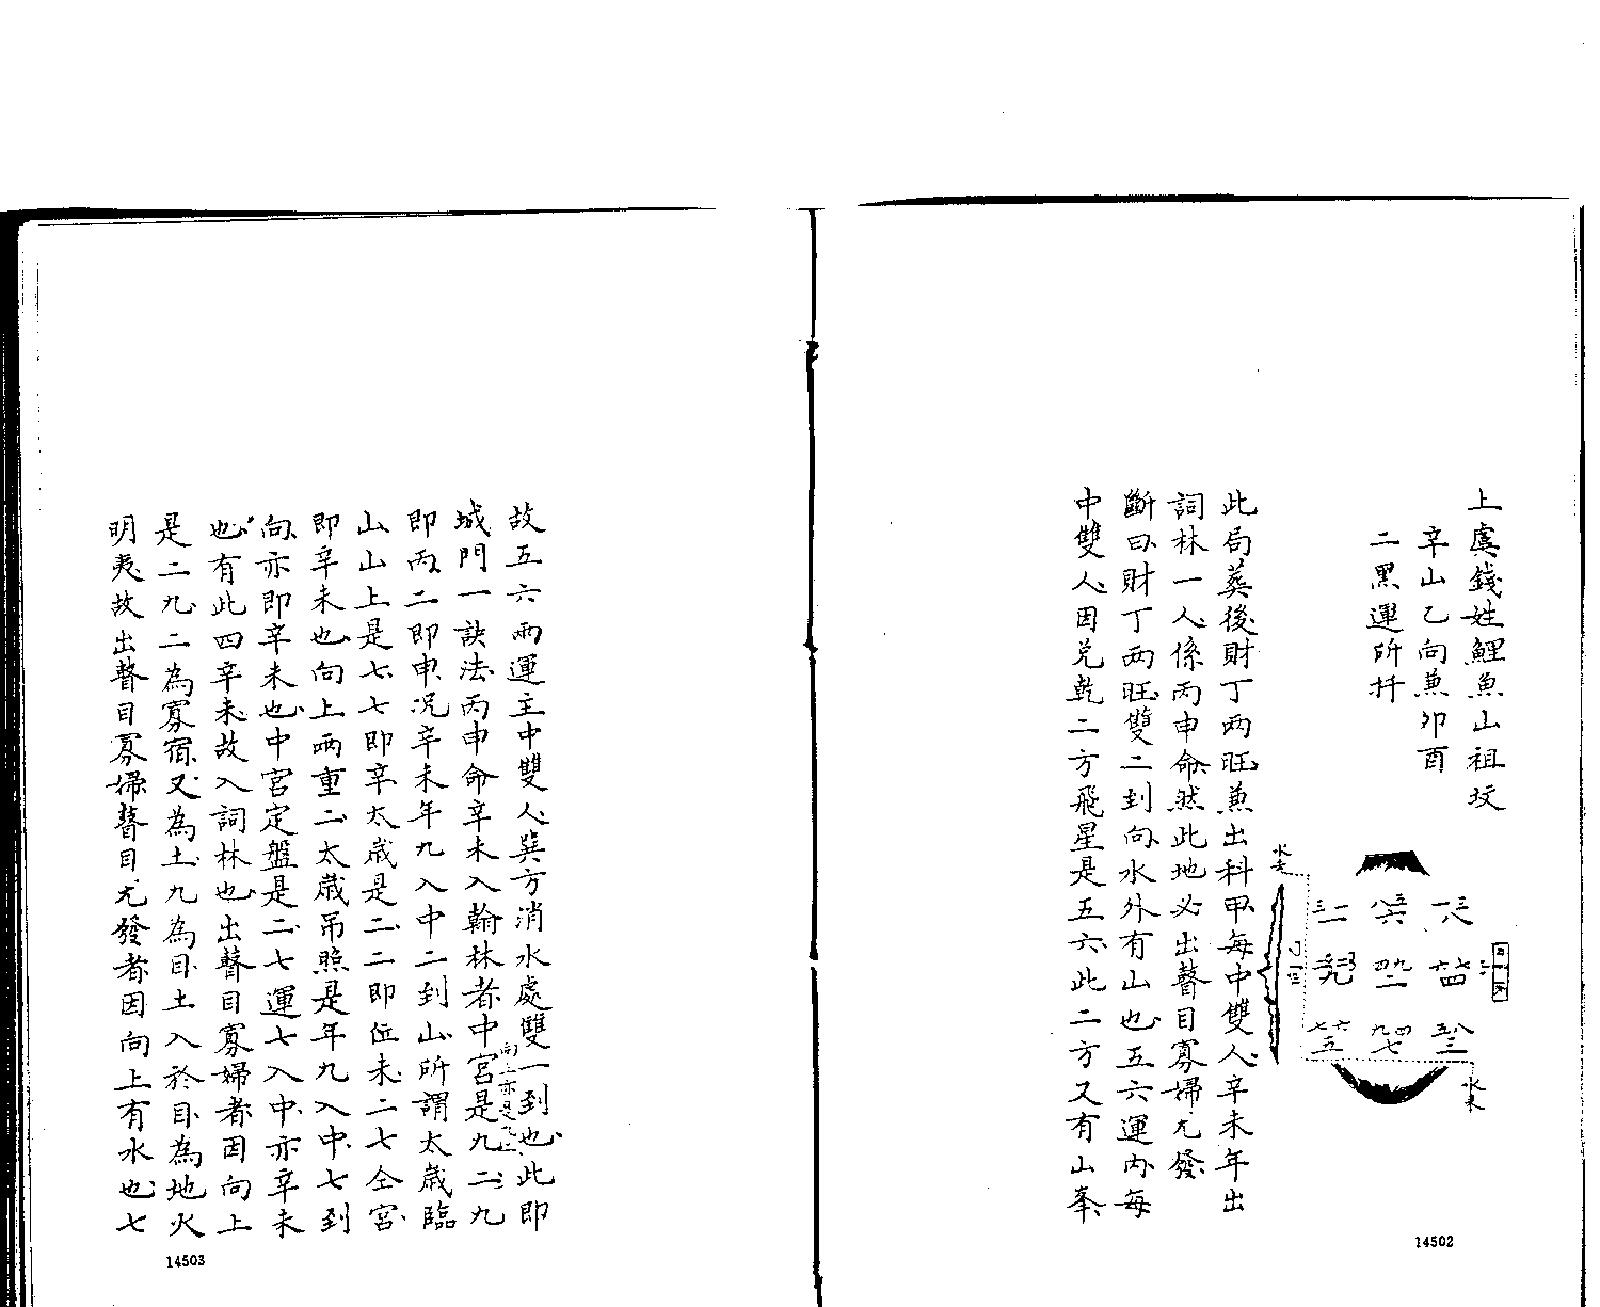 上虞錢姓鯉魚山祖坟
辛山乙向兼卯酉
二黑運所扦
水來
水去
此局葬後財丁两旺兼出科甲每中雙人辛未年出
詞林一人係丙申命然此地必出瞽目寡婦尤發
斷曰財丁两旺雙二到向水外有山也五六運內每
中雙人因兌乾二方飛星是五六此二方又有山峯
14502
故五六兩運主中雙人巽方消水處雙一到也此即
城門一訣法丙申命辛未入翰林者中宮是九二九
向上亦是
即丙二即申况辛未年九入中二到山所謂太歲臨
山山上是七七即辛太歲是二二即在未二七仝宮
即辛未也向上两重二太歲吊照是年九入中七到
向亦即辛未也中宮定盤是二二七運七入中亦辛未
也有此四辛未故入詞林也出瞽目寡婦者因向上
是二九二為寡宿又為土九為目土入於目為地火
明夷故出瞽目寡婦瞽目尤發者因向上有水也七
14503